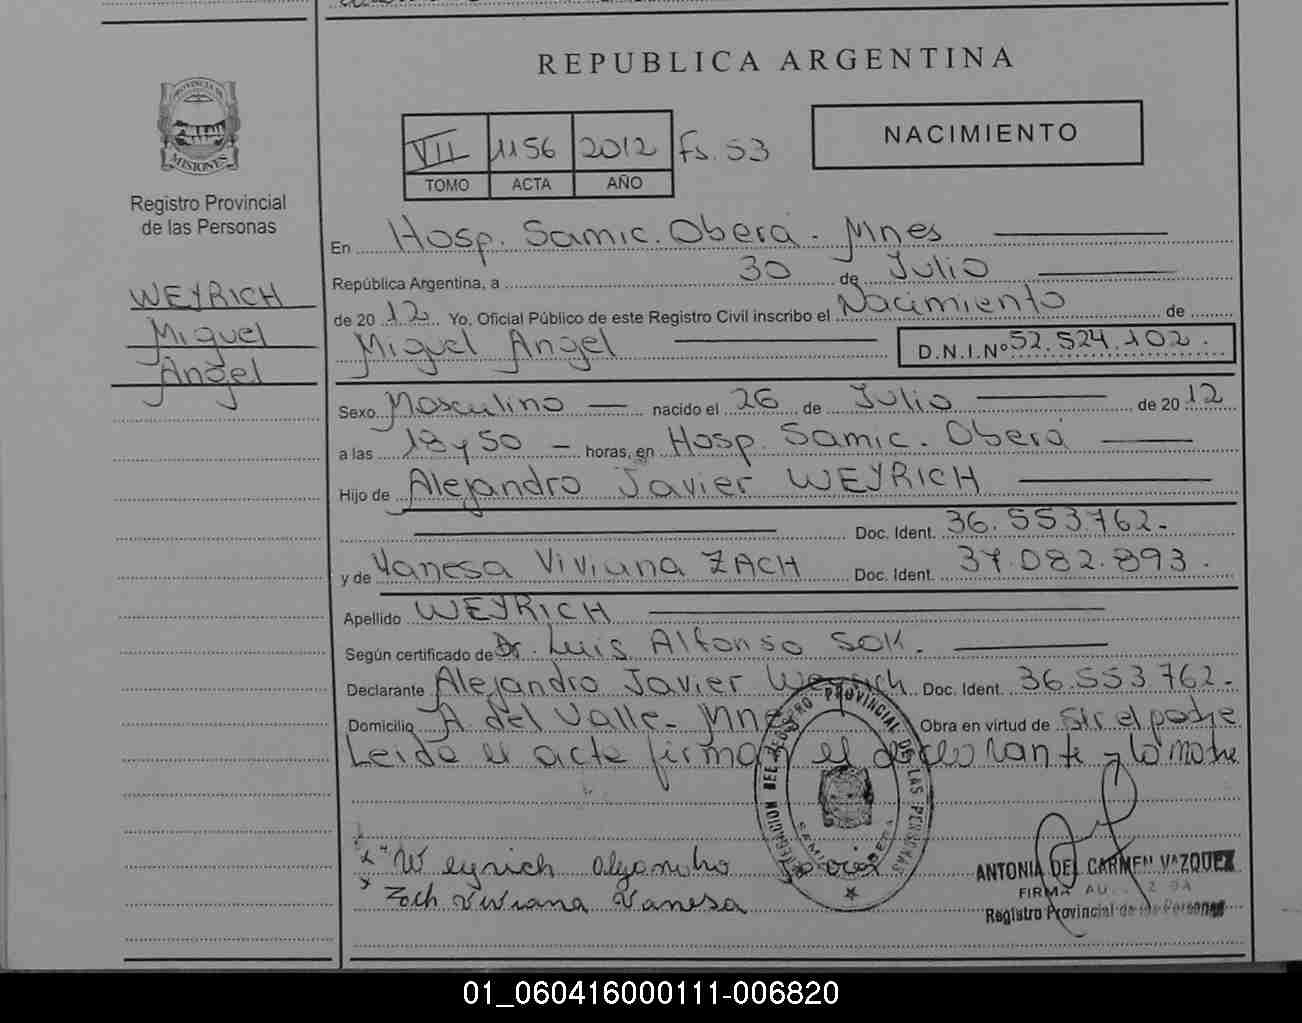 REPUBLICA ARGENTINA
PROVINCIA DE
MISIONES
Registro Provincial
de las Personas
WEYRICH
Miguel
Angel
VII 1156 2012 Fs. 53
TOMO ACTA AÑO
NACIMIENTO
En Hosp. Samic. Oberá. Mnes
República Argentina, a 30 de Julio
de 2012 Yo, Oficial Público de este Registro Civil inscribo el Nacimiento de
Miguel Angel D.N.I.Nº 52.524.102.
Sexo Masculino nacido el 26 de Julio de 2012
a las 18 y 50 horas, en Hosp. Samic. Oberá
Hijo de Alejandro Javier WEYRICH
Doc. Ident. 36.553.762.
y de Vanesa Viviana ZACH Doc. Ident. 37.082.893.
Apellido WEYRICH
Según certificado de Dr. Luis Alfonso SOK.
Declarante Alejandro Javier Weyrich Doc. Ident. 36.553.762.
Domicilio A. del Valle - Mnes Obra en virtud de ser el padre
Leida el acta firman el declarante y la madre
DELEGACION DEL REGISTRO PROVINCIAL DE LAS PERSONAS
Weyrich
Zach Viviana Vanesa
ANTONIA DEL CARMEN VAZQUEZ
FIRMA
Registro Provincial de las Personas
01_060416000111-006820